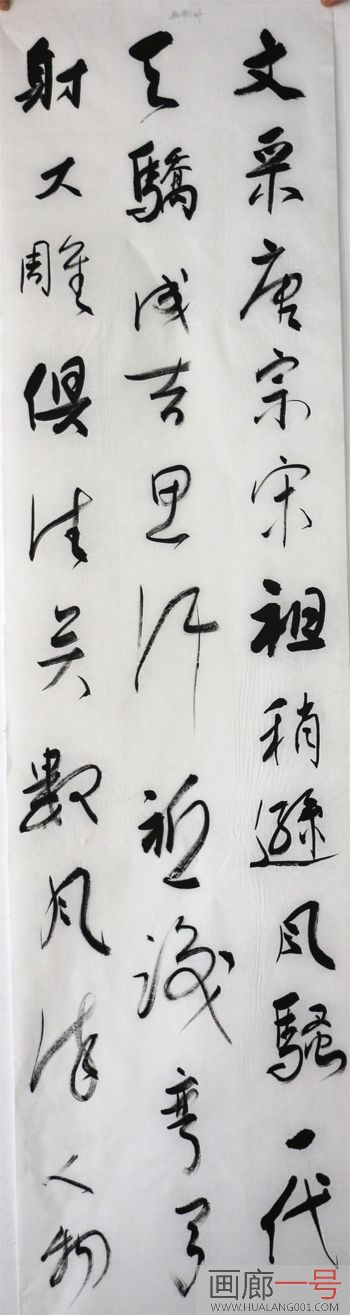 文采唐宗宋祖稍遜风騷一代
天驕成吉思汗祗識弯弓
射大雕俱往矣數风流人物
画廊一号
WWW.HUALANG001.COM